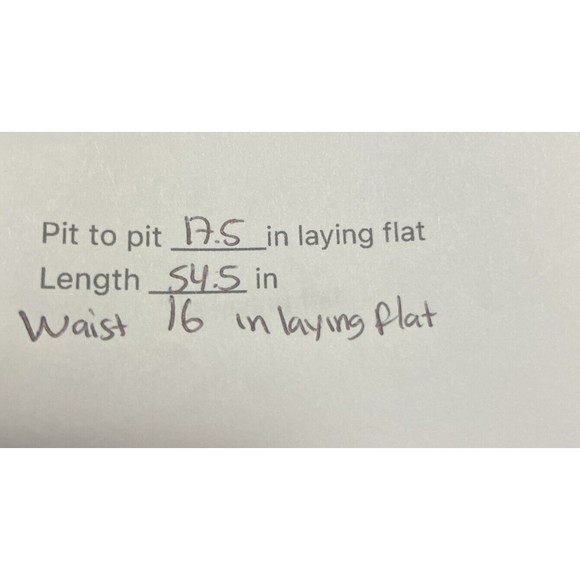 Pit to pit 17.5 in laying flat
Length 54.5 in
Waist 16 in laying flat